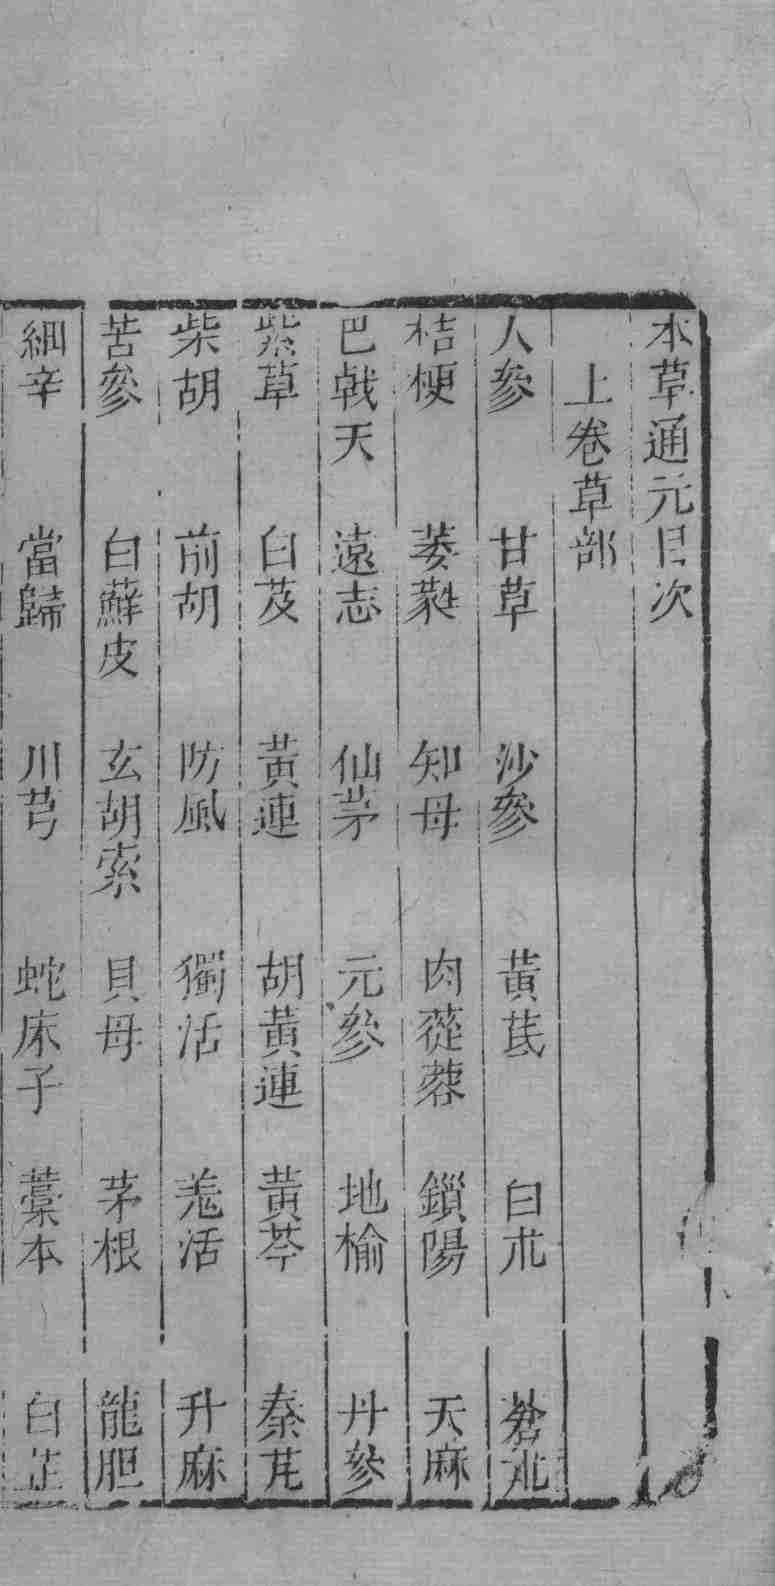 本草通元目次
上卷草部
人參 甘草 沙參 黃茋 白朮 蒼朮
桔梗 萎蕤 知母 肉蓯蓉 鎖陽 天麻
巴戟天 遠志 仙茅 元參 地榆 丹參
紫草 白及 黃連 胡黃連 黃芩 秦芃
柴胡 前胡 防風 獨活 羗活 升麻
苦參 白蘚皮 玄胡索 貝母 茅根 龍胆
細辛 當歸 川芎 蛇床子 藁本 白芷